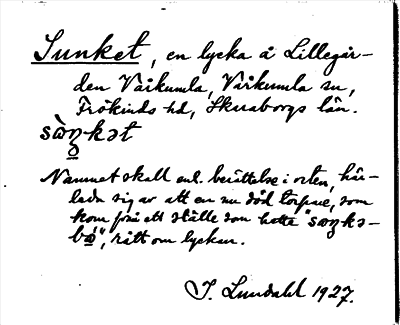 Sunket, en lycka å Lillegår-
den Vårkumla, Vårkumla sn,
Frökinds hd, Skaraborgs län.
sàŋkət
Namnet skall enl. berättelse i orten, här-
leda sig av att en nu död torpare, som
kom från ett ställe som hette "sɔŋkə-
bo", rått om lyckan.
J. Lundahl 1927.